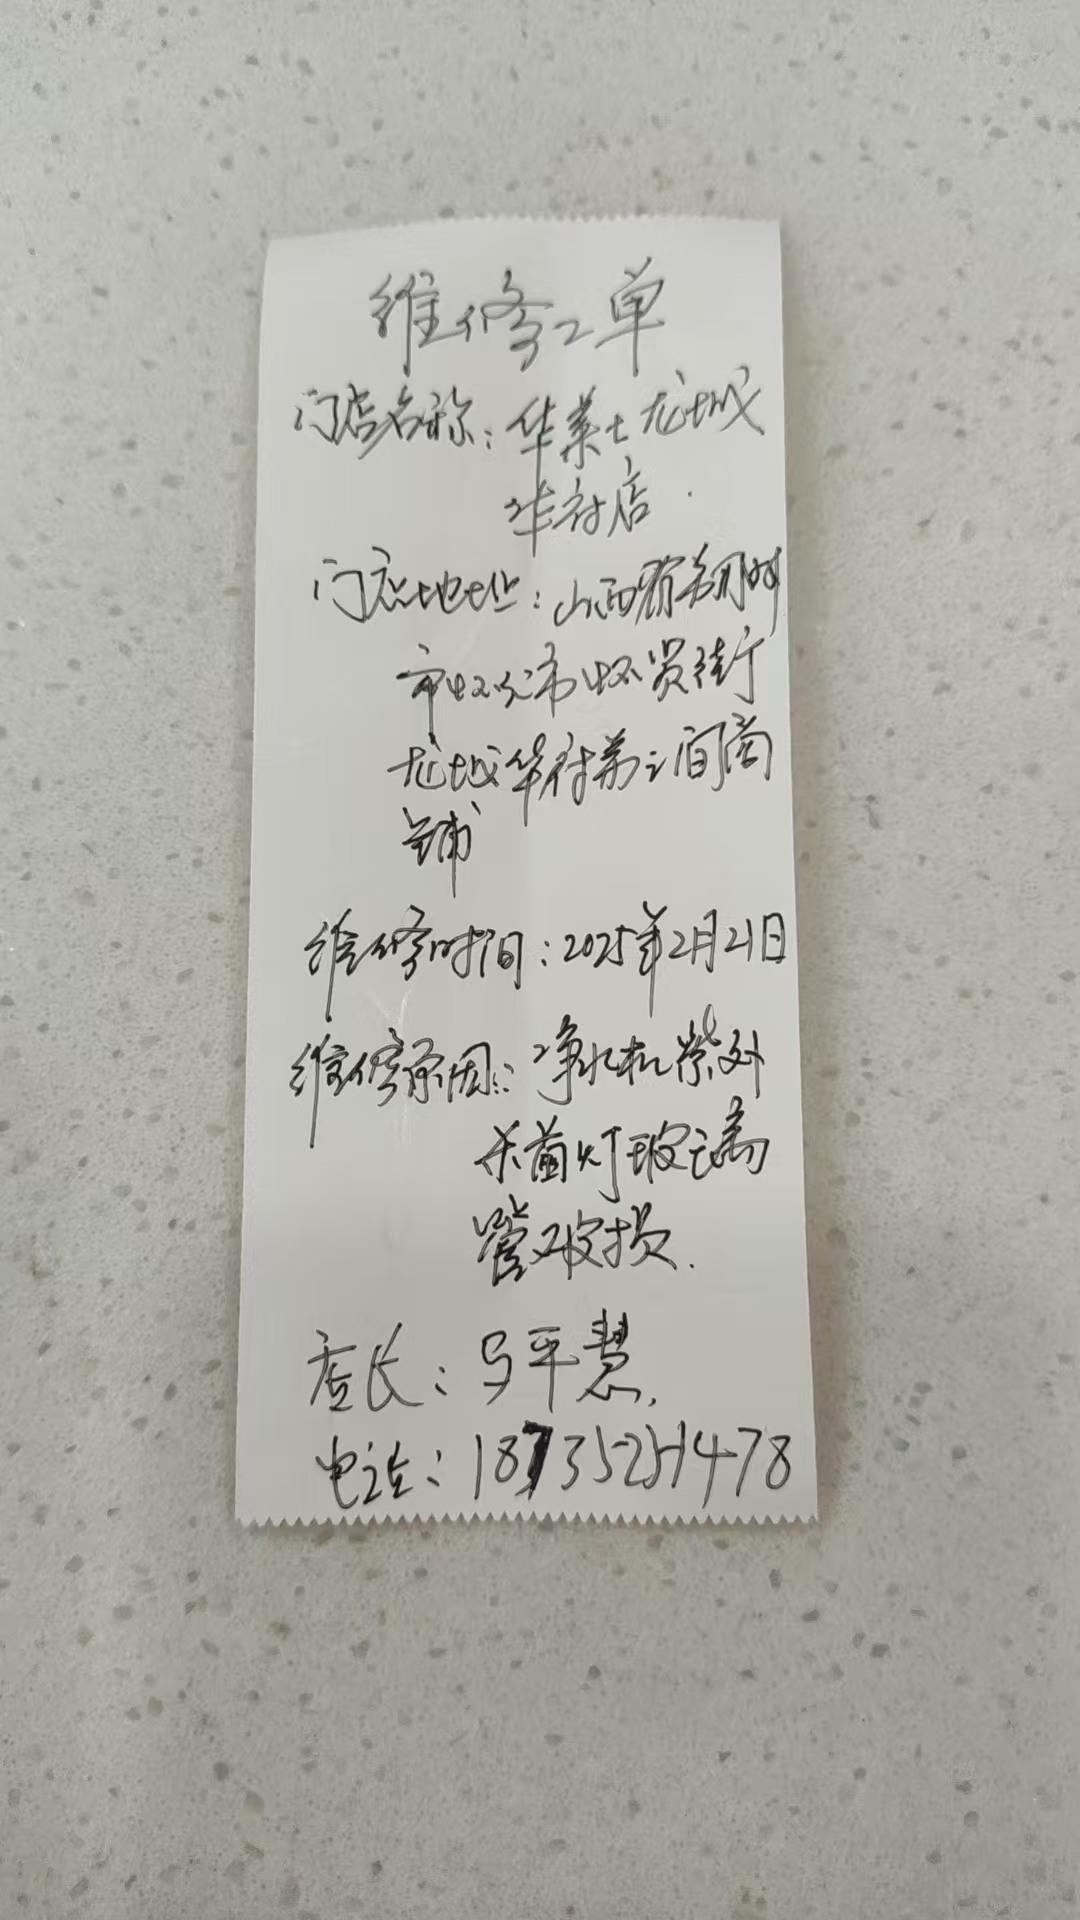 维修工单
门店名称：华莱士龙城
华府店
门店地址：山西省朔州
市怀仁市怀贤街
龙城华府第二间商
铺
维修时间：2025年2月21日
维修原因：净水机紫外
杀菌灯玻璃
管破损.
店长：马平慧.
电话：18735251478